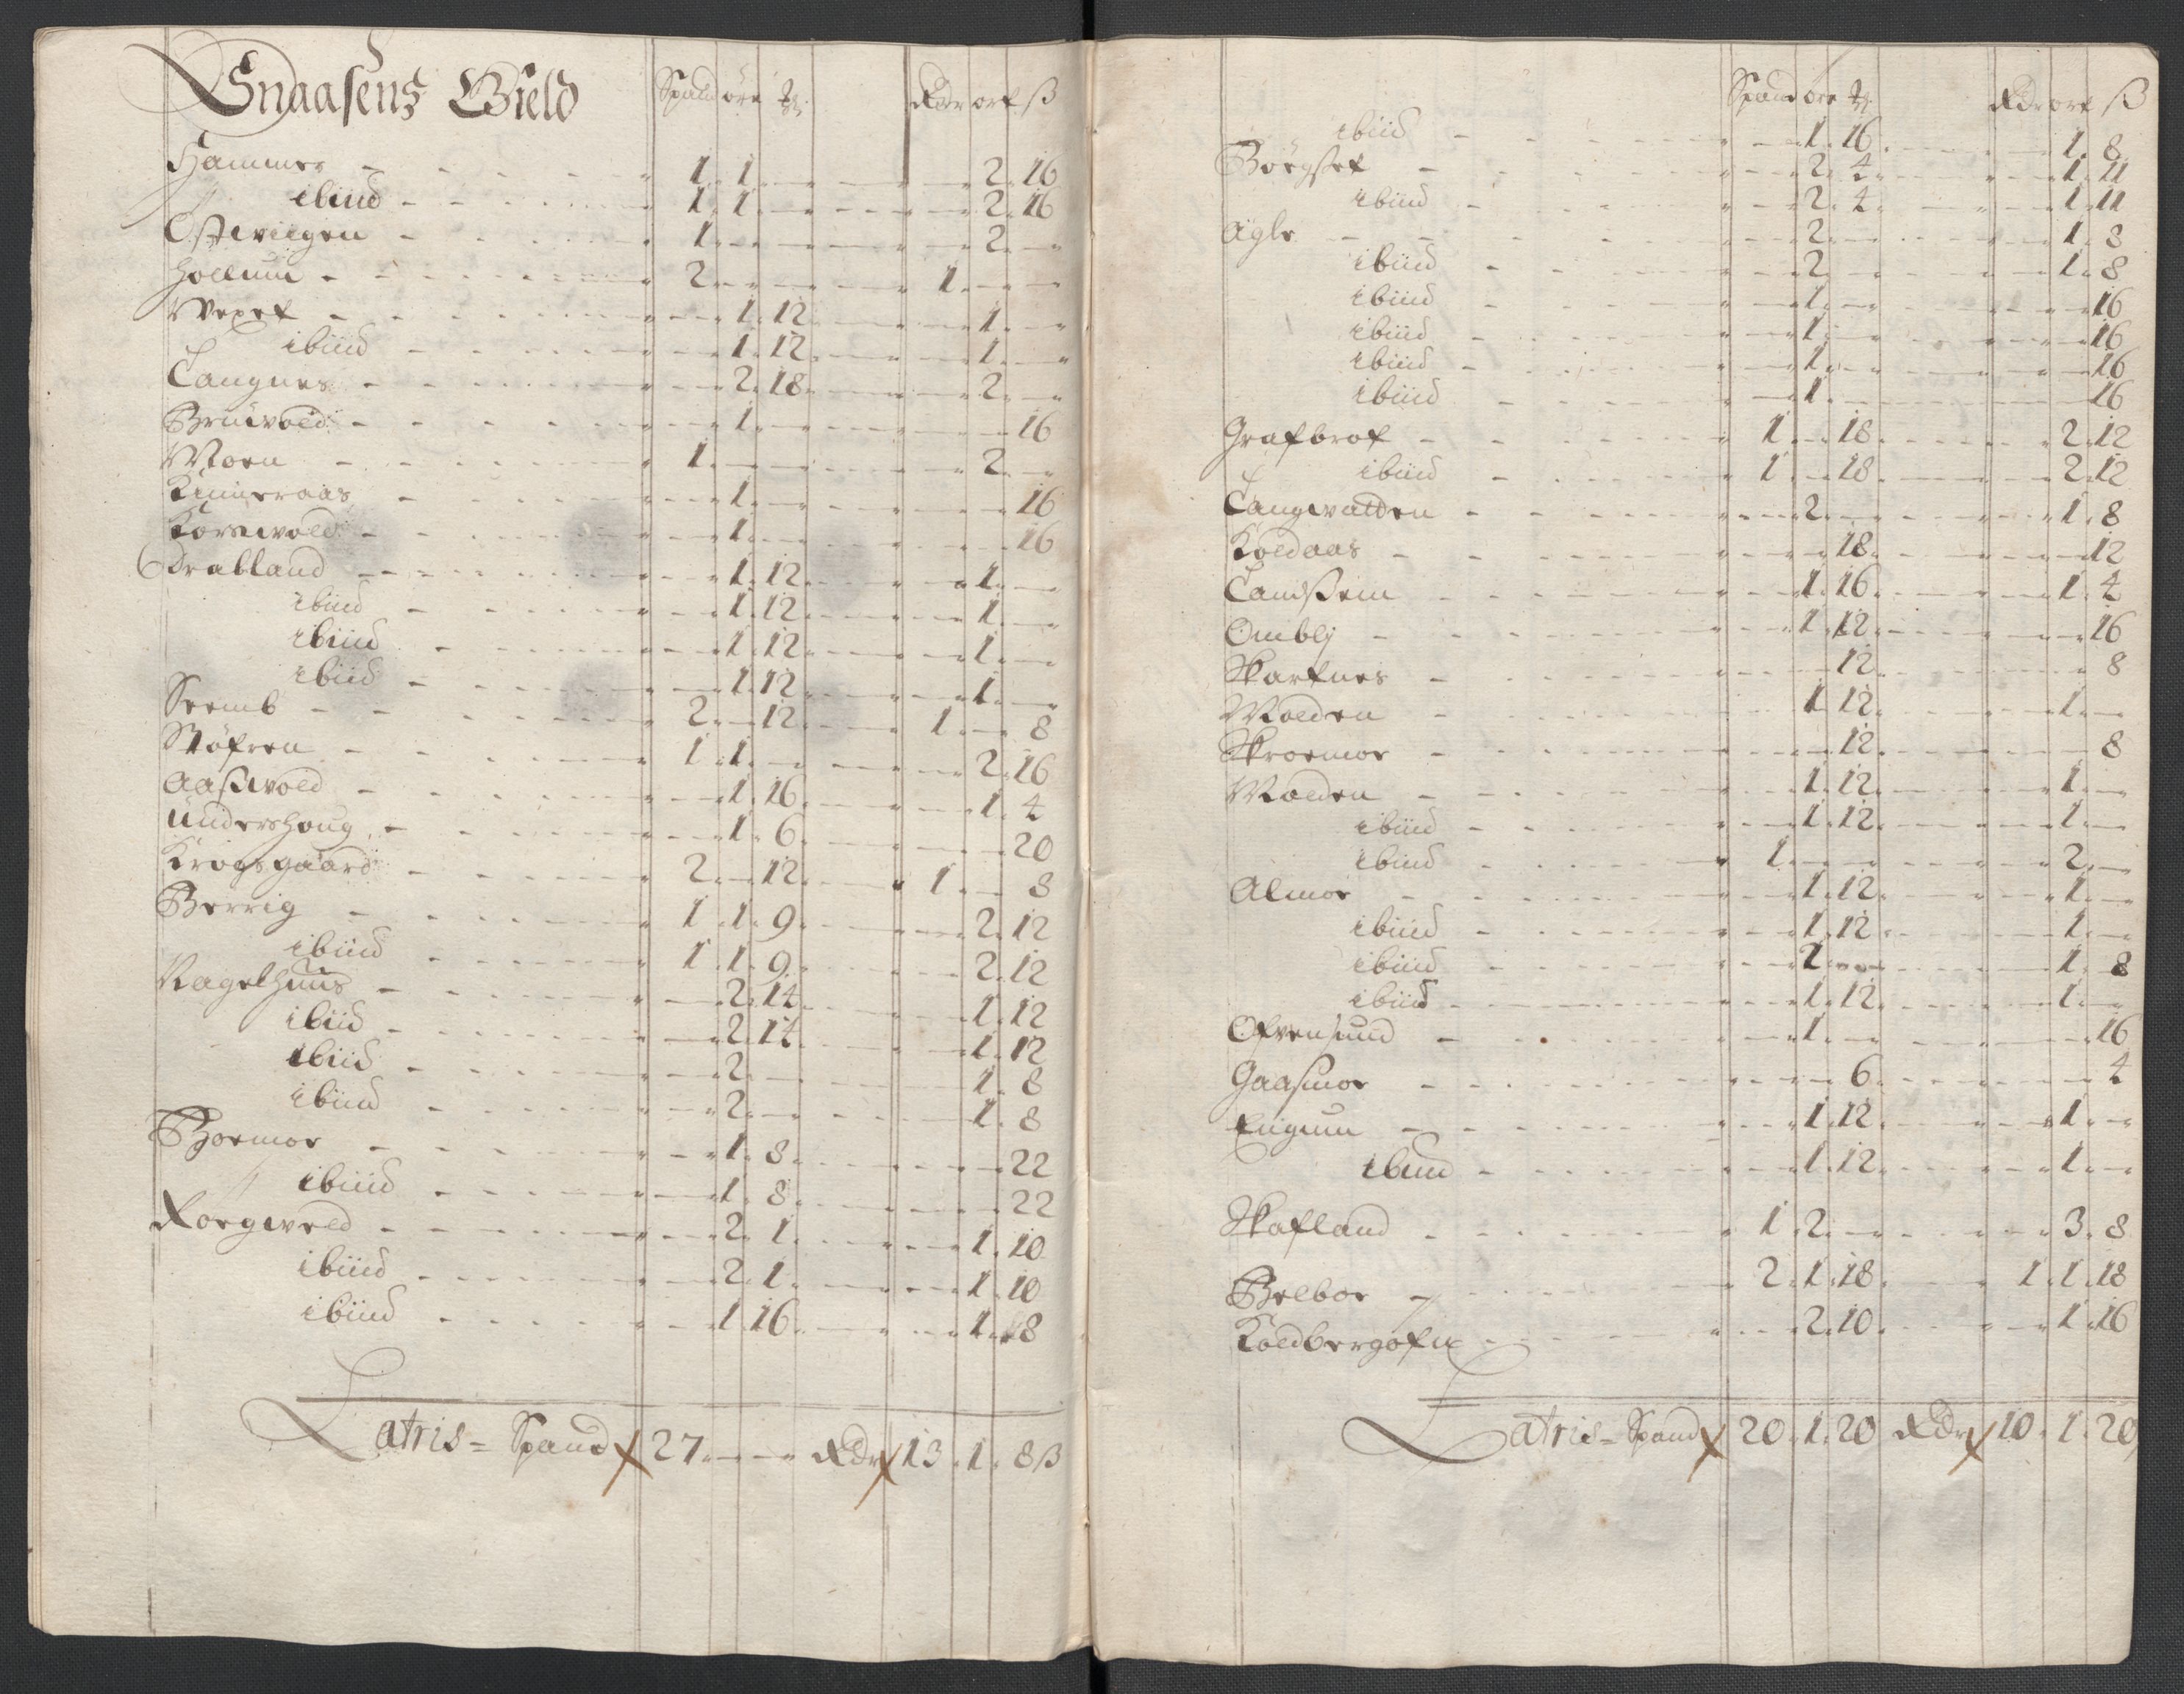 Snaasens Gield Spand öre
Rdr ort ß
Hammer 1. 1. 2. 16
ibiid 1. 1. 2. 16
Østwiigen 1. 2.
Hollum 2. 1.
Wexet 1. 12 1.
ibiid 1. 12. 1.
Langnes 2. 18. 2.
Bruwold 1. 16
Moen 1. 2.
Kimeraas 1. 16
Kornwold 1. 16
Dralland 1. 12. 1.
ibiid 1. 12. 1.
ibiid 1. 12. 1.
ibiid 1. 12 1.
Seemb 2. 12. 1. 8
Støfren 1. 1. 2. 16
Aaswold 1. 16. 1. 4
Undershoug 1. 6. 20
Krogsgaard 2. 12. 1. 8
Berrig 1. 1. 9 2. 12
ibiid 1. 1. 9. 2. 12
Nagelhuus 2. 14. 1. 12
ibiid 2. 14. 1. 12
ibiid 2. 1. 8
ibiid 2. 1. 8
Bjoemor 1. 8. 22
ibiid 1. 8. 22
Roegwold 2. 1. 1. 10
ibiid 2. 1. 1. 10
ibiid 1. 16. 1. 8
Latris = Spand 27. Rdr 13. 1. 8 ß
Spand öre Rdr ort ß
ibiid 1. 16. 1. 8
Børgset 2. 4. 1. 11
ibiid 2. 4. 1. 11
Agle 2. 1. 8
ibiid 2 1. 8
ibiid 1. 16
ibiid 1. 16
ibiid 1. 16
ibiid 1. 16
Grafbrot 1. 18. 2. 12
ibiid 1. 18. 2. 12
Langwatden 2. 1. 8
Koldaas 18. 12
Landsem 1. 16. 1. 4
Ombly 1. 12. 16
Skarfnes 12. 8
Molden 1. 12. 1.
Skroemor 12. 8
Molden 1. 12. 1.
ibiid 1. 12. 1.
ibiid 1. 2.
Almor 1. 12. 1.
ibiid 1. 12. 1.
ibiid 2. 1. 8
ibiid 1. 12. 1.
Ofrensund 1. 16
Gaasmor 6. 4
Engum 1. 12. 1.
ibiid 1. 12. 1.
Skafland 1. 2. 3. 8
Belbor 2. 1. 18. 1. 1. 18
Koldbergofn 2. 10. 1. 16
Latris = Spand 20. 1. 20 Rdr 10. 1. 20